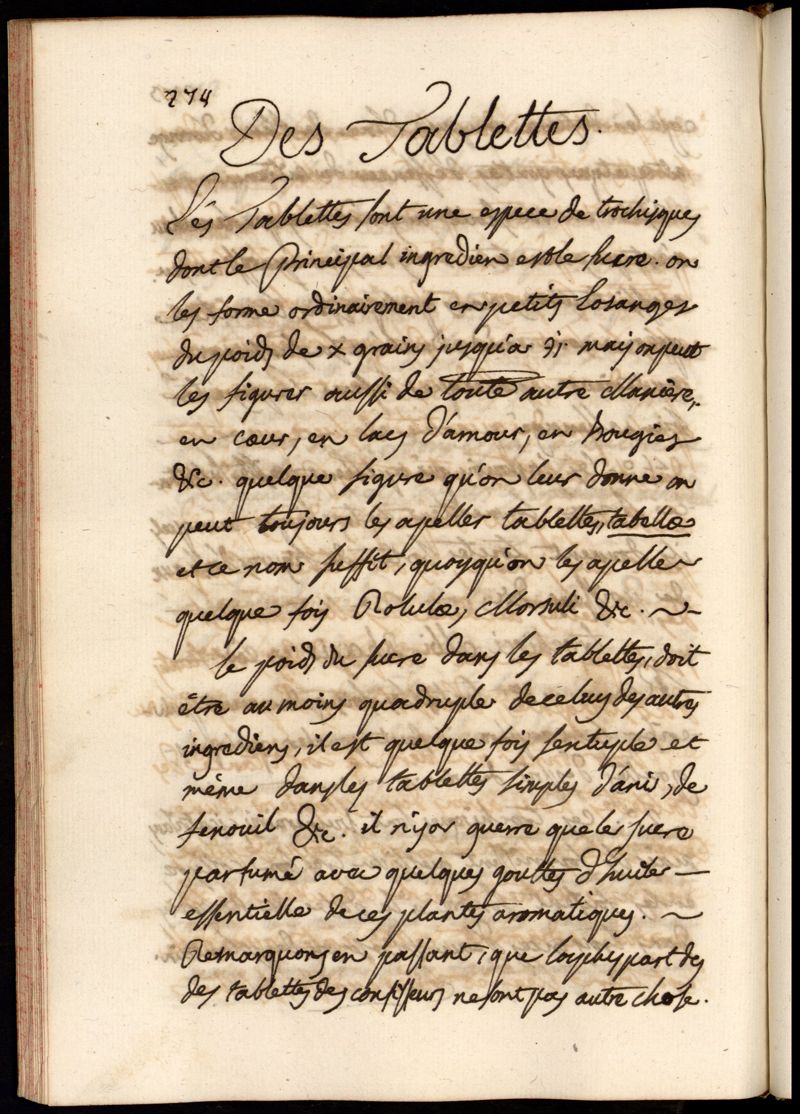 274
Des Tablettes.
Les Tablettes sont une espece de trochisques
dont le Principal ingredien est le sucre. on
les forme ordinairement en petits losanges
du poids de x grains jusqu'a ʒj. mais on peut
les figurer aussi de toute autre Maniere,
en cœur, en lacs d'amour, en Bougies
&c. quelque figure qu'on leur donne on
peut toujours les apeller tablettes, tabellæ
et ce nom suffit, quoyqu'on les apelle
quelque fois Rotulæ, Morsuli &c. ~
le poids du sucre dans les tablettes, doit
être au moins quadruple de celuy des autres
ingrediens, il est quelque fois sentuple et
même dans les tablettes simples d'ani, de
fenouil &c. il n'y a guerre que le sucre
parfumé avec quelques gouttes d'huile —
essentielle de ces plantes aromatiques. ~
Remarquons en passant, que la plus part des
des tablettes des confisseurs ne sont pas autre chose.